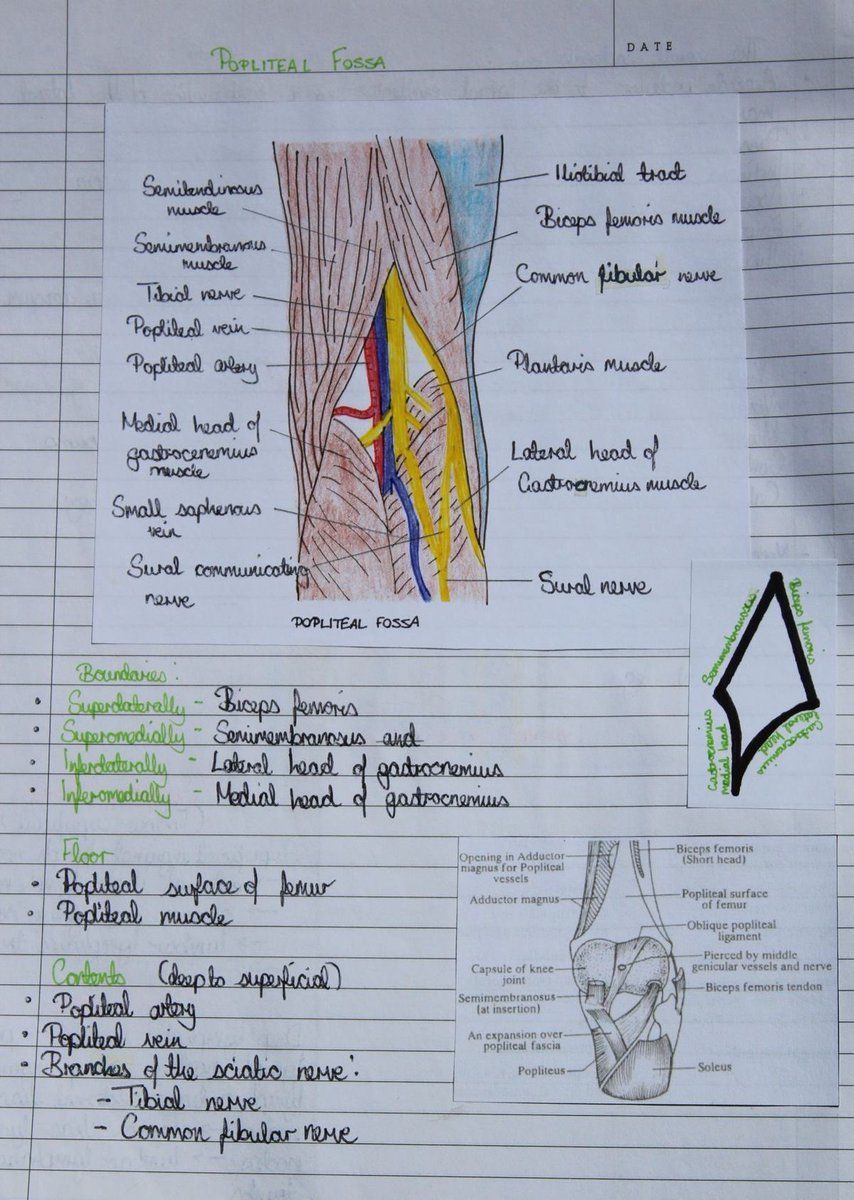 DATE
POPLITEAL FOSSA
Semitendinous
muscle
Semimembranous
muscle
Tibial nerve
Popliteal vein
Popliteal artery
Medial head of
gastrocenemius
muscle
Small saphenous
vein
Sural communicating
nerve
Iliotibial tract
Biceps femoris muscle
Common fibular nerve
Plantaris muscle
Lateral head of
Gastrocnemius muscle
Sural nerve
POPLITEAL FOSSA
Semimembranosus
Biceps femoris
Gastrocnemius
medial head
Gastrocnemius
lateral head
Boundaries:
• Superolaterally - Biceps femoris
• Superomedially - Semimembranosus and
• Inferolaterally - Lateral head of gastrocnemius
• Inferomedially - Medial head of gastrocnemius
Floor
• Popliteal surface of femur
• Popliteal muscle
Contents (deep to superficial)
• Popliteal artery
• Popliteal vein
• Branches of the sciatic nerve:
- Tibial nerve
- Common fibular nerve
Opening in Adductor
magnus for Popliteal
vessels
Adductor magnus
Capsule of knee
joint
Semimembranosus
(at insertion)
An expansion over
popliteal fascia
Popliteus
Biceps femoris
(Short head)
Popliteal surface
of femur
Oblique popliteal
ligament
Pierced by middle
genicular vessels and nerve
Biceps femoris tendon
Soleus